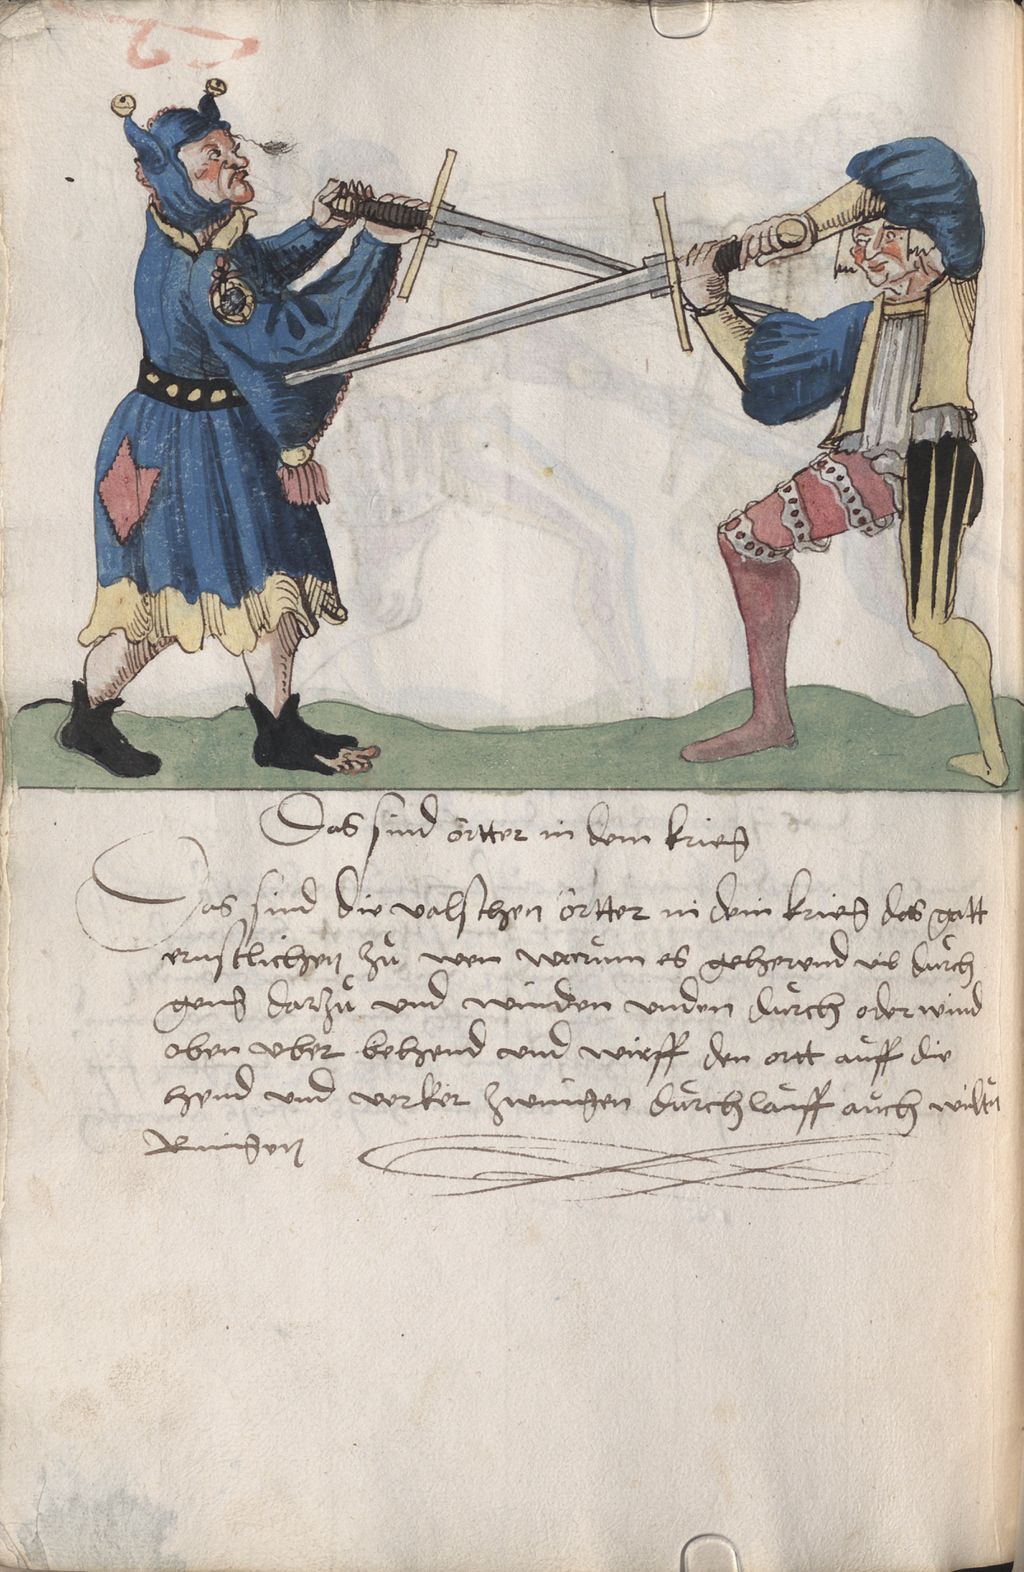 Das sind örtter in dem krieg
Das sind die valschen örtter in dem krieg das gatt
ernstlichen zů wen warumm es geherend vil durch
geng darzů und winden unden durch oder wind
oben vber behend und wirff den ortt auff die
hend und verker zwingen durch lauff auch
Ringen